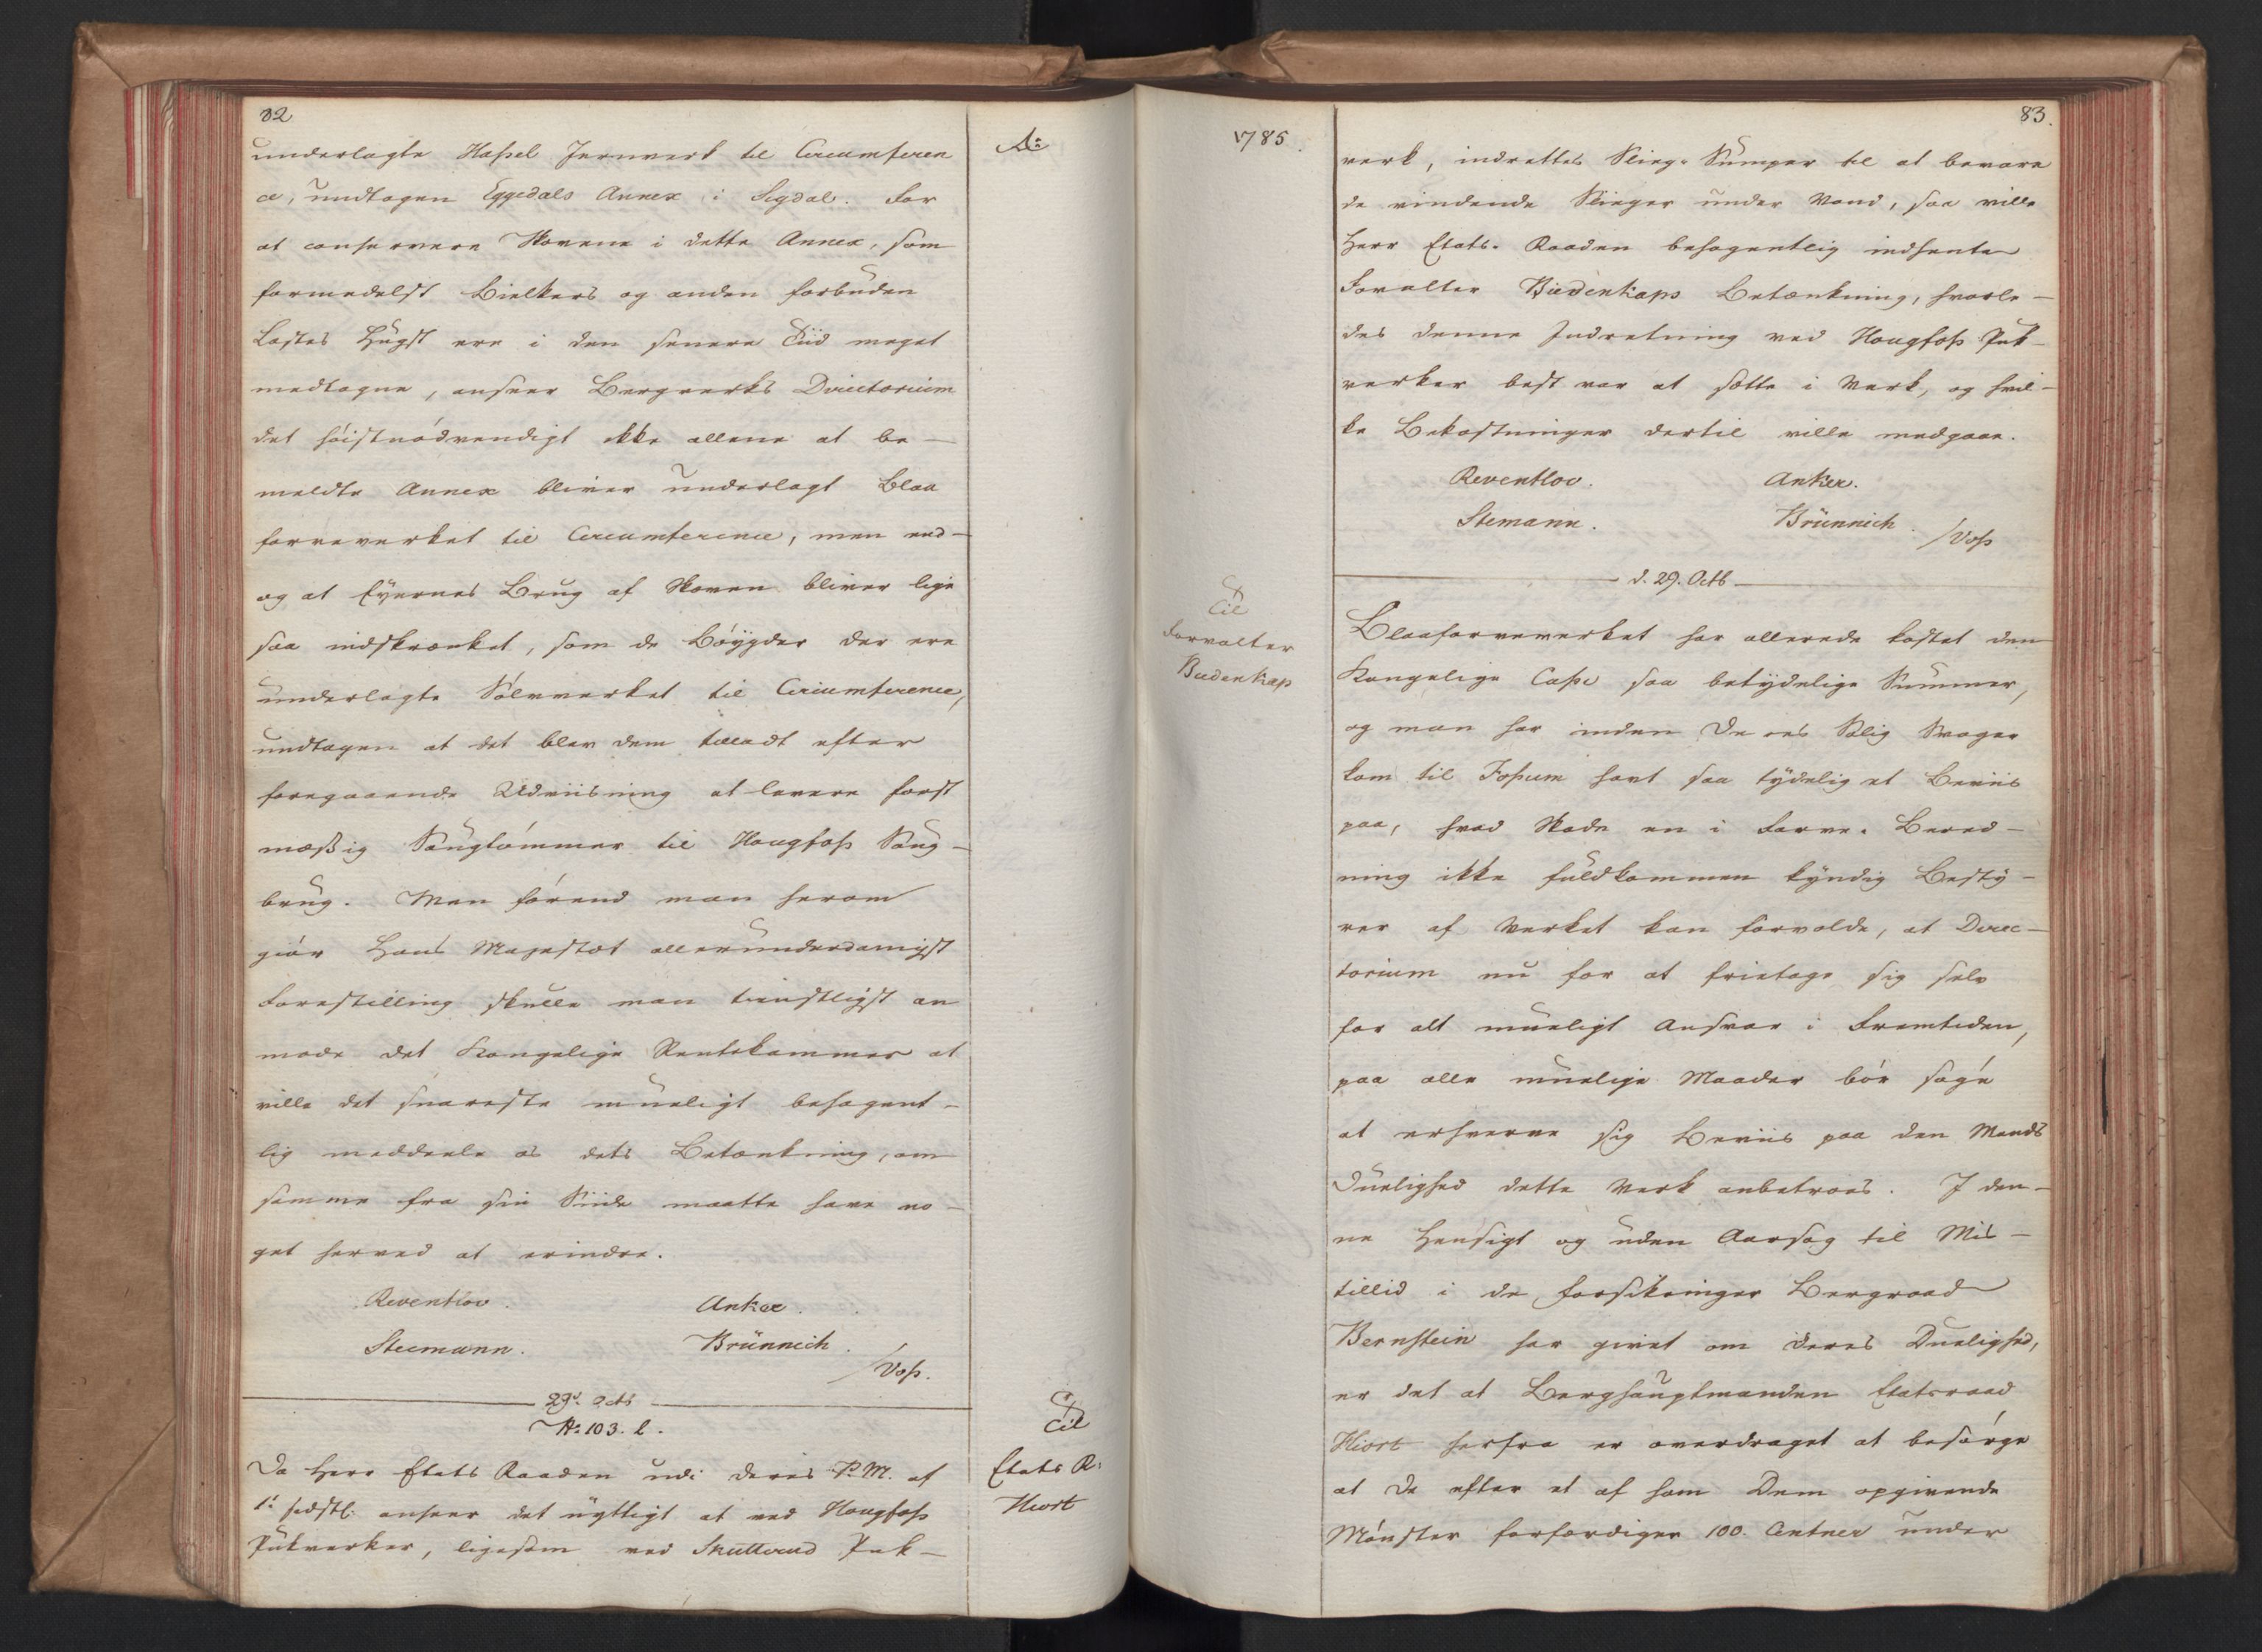 82
underlagte Haßel Jernverk til Circumferen
ce, undtagen Eggedals Annex i Sigdal. For
at conservere Skovene i dette Annex, som
formedelst Bielkers og anden forbuden
Lastes Hugst ere i den senere Tiid meget
medtagne, anseer Bergverks Directorium
det höistnödvendigt ikke allene at be-
meldte Annex bliver underlagt Blaa
farveverket til Circumference, men end-
og at Eyernes Brug af Skoven bliver lige
saa indskrænket, som de Böygder der ere
underlagte Sölvverket til Circumference,
undtagen at det blev dem tilladt efter
foregaaende Udviisning at levere forst
mæßig Saugtömmer til Hougfoß Saug-
brug. Men förend man herom
giör Hans Majestæt allerunderdanigst
Forestilling skulle man tienstligst an
mode det Kongelige Rentekammer at
ville det snareste mueligt behagent-
lig meddeele os dets Betænkning, om
samme fra sin Siide maatte have no-
get herved at erindre.
Reventlov. Anker.
Stemann. Brünnich.
/Voß.
29d. Octb
No: 103. l.
Da Herr Etats Raaden udi deres P. M. af
1: sidstl: anseer det nyttigt at ved Hougfoß
Pukverker, ligesom ved Skutterud Puk-
Ao:
Til
Etats R:
Hiort
1785.
Til
Forvalter
Budenkap
83.
verk, indrettes Slieg-Sumper til at bevare
de vindende Slieger under Vand, saa ville
Herr Etats-Raaden behagentlig indhente
Forvalter Budenkaps Betænkning, hvorle-
des denne Indretning ved Hougfoß Puk-
verker best var at sætte i Verk, og hvil-
ke Bekostninger dertil ville medgaae.
Reventlov. Anker.
Stemann. Brünnich.
/Voß
d. 29. Octb
Blaafarveverket har allerede kostet den
Kongelige Caße saa betydelige Summer,
og man har inden Deres Salig Svoger
kom til Foßum havt saa tydelig et Beviis
paa, hvad Skade en i Farve-Bered-
ning ikke fuldkommen kyndig Besty-
rer af Verket kan forvolde, at Direc-
torium nu for at frietage sig selv
for alt mueligt Ansvar i Fremtiden,
paa alle muelige Maader bör söge
at erhverve sig Beviis paa den Mands
Duelighed dette Verk anbetroes. I den-
ne Hensigt og uden Aarsag til Mis-
tillid i de forsikringer Bergraad
Bernstein har givet om deres Duelighed,
er det at Berghauptmanden Etatsraad
Hiort herfra er overdraget at besörge
at De efter et af ham Dem opgivende
Mönster forfærdiger 100. Centner under